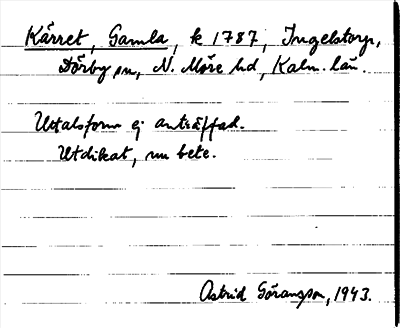 Kärret, Gamla, k 1787, Ingelstorp,
Dörby sn, N. Möre hd, Kalm. län.
Uttalsform ej anträffad.
Utdikat, nu bete.
Astrid Göransson, 1943.